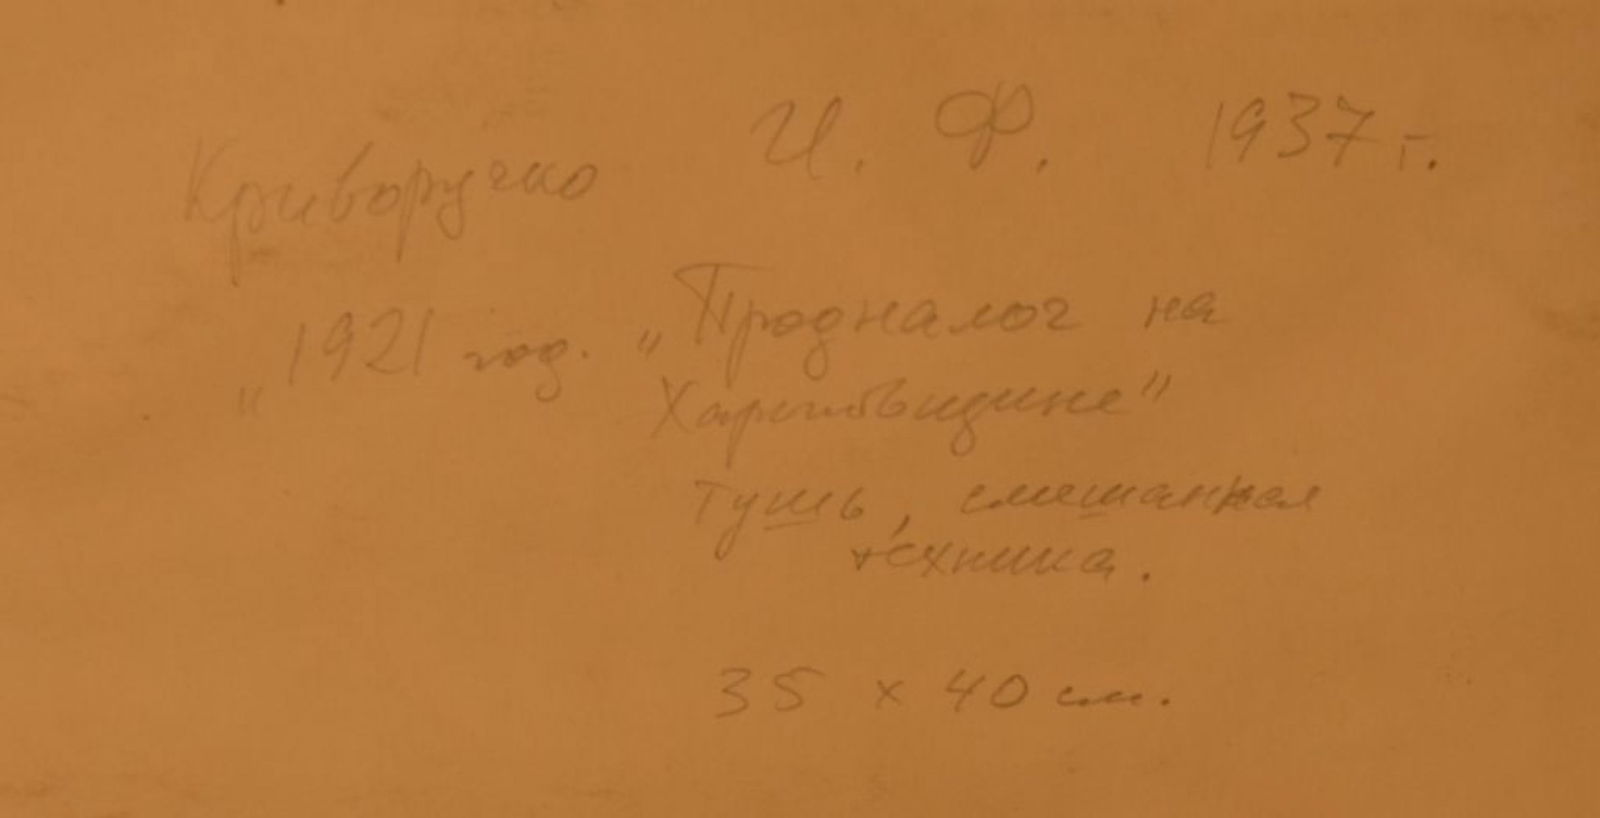 Криворучко И. Ф. 1937 г.
„ 1921 год. „Продналог на
Харьковщине"
тушь, смешанная
техника.
35 х 40 см.